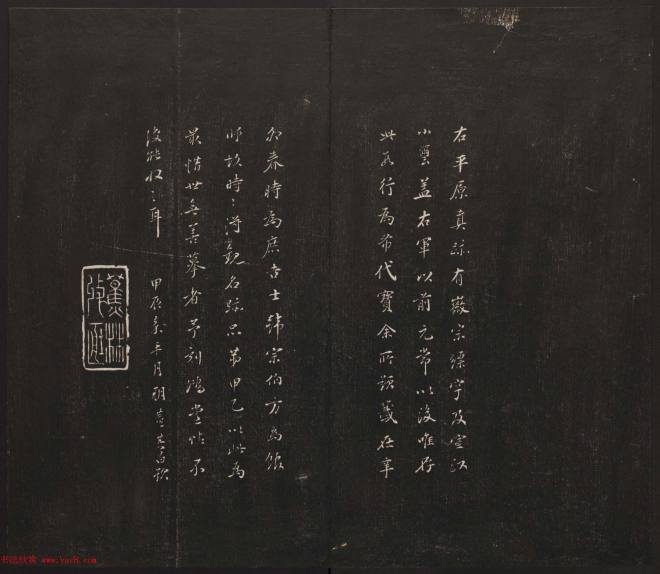 右平原真跡有徽宗標字及宣政
小璽蓋右軍以前元常以後唯存
此數行為希代寶余所題籤在辛
卯春時為庶吉士韓宗伯方為館
師故時時得觀名跡品第甲乙以此為
最惜世無善摹者予刻鴻堂帖不
復能收之耳 甲辰冬 月朔董其昌跋
蕉林
书法欣赏 www.yac8.com